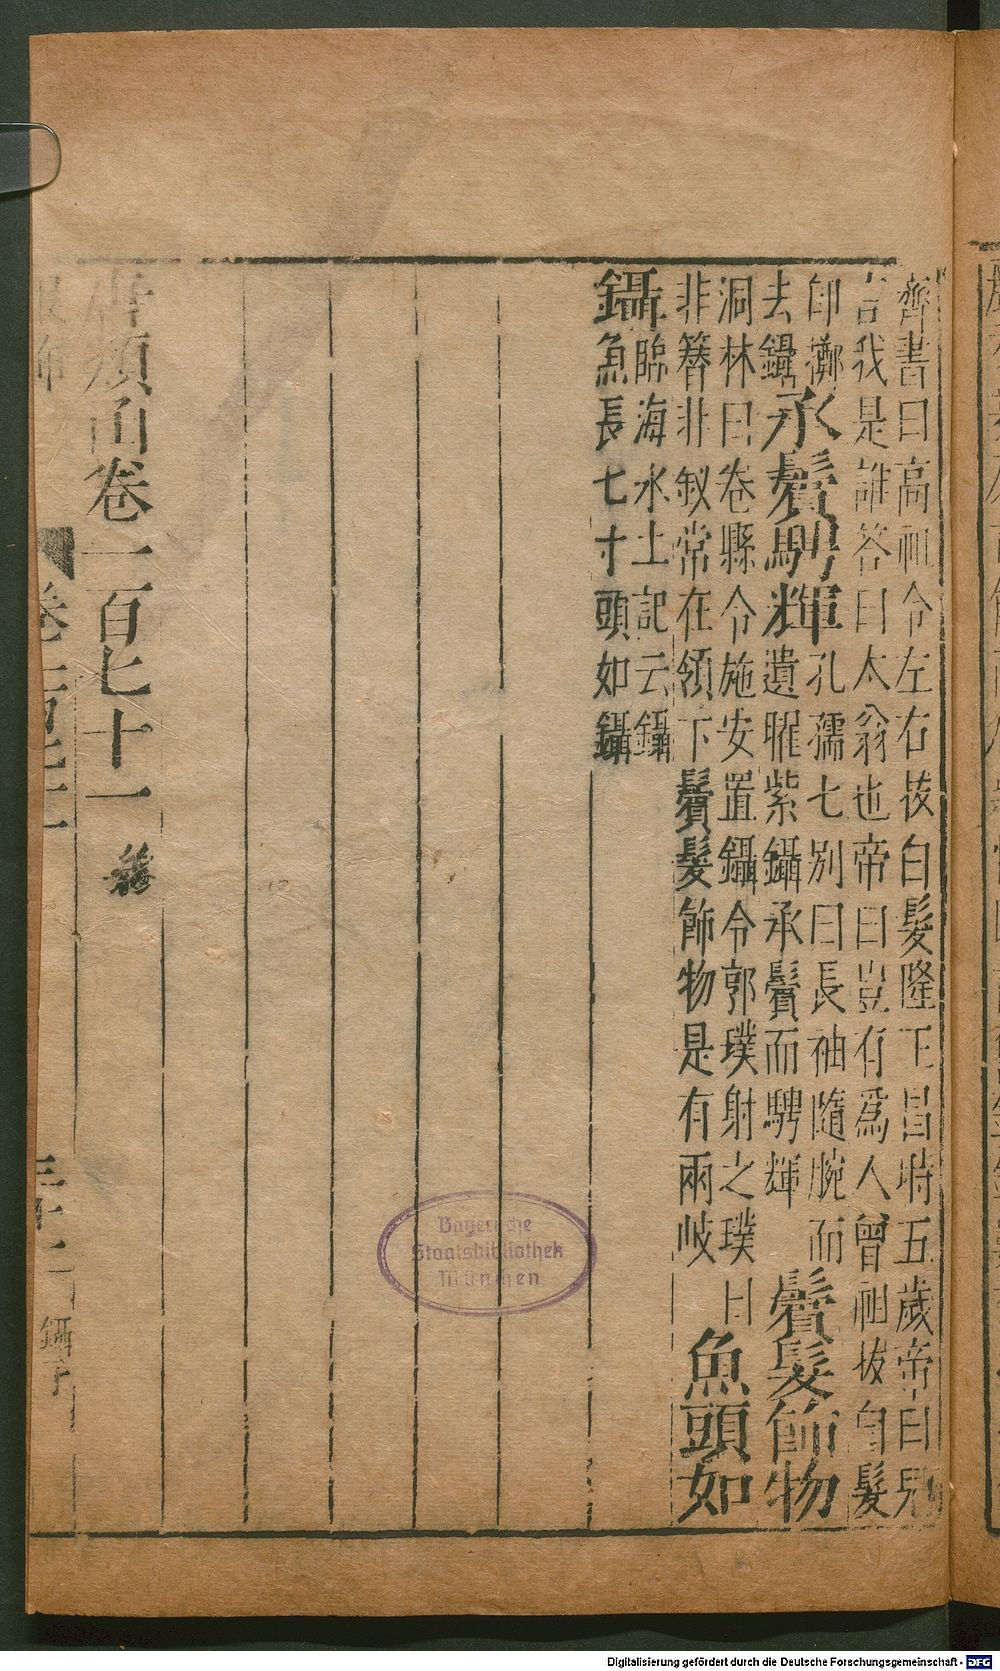 齊書曰高祖令左右拔白髮隆正昌時五歲帝曰兒
言我是誰答曰太翁也帝曰豈有爲人曾祖拔白髮
即擲
去鑷
承鬢騁輝
孔孺七別曰長袖隨腕而
遺曜紫鑷承鬢而騁輝
鬢髮飾物
洞林曰卷縣令施安置鑷令郭璞射之璞曰
非簪非釵常在領下鬢髮飾物是有兩岐
魚頭如
鑷
臨海水土記云鑷
魚長七寸頭如鑷
唐類函卷一百七十一 終
卷一百七十一
三十二
鑷子
Bayerische
Staatsbibliothek
München
Digitalisierung gefördert durch die Deutsche Forschungsgemeinschaft - DFG